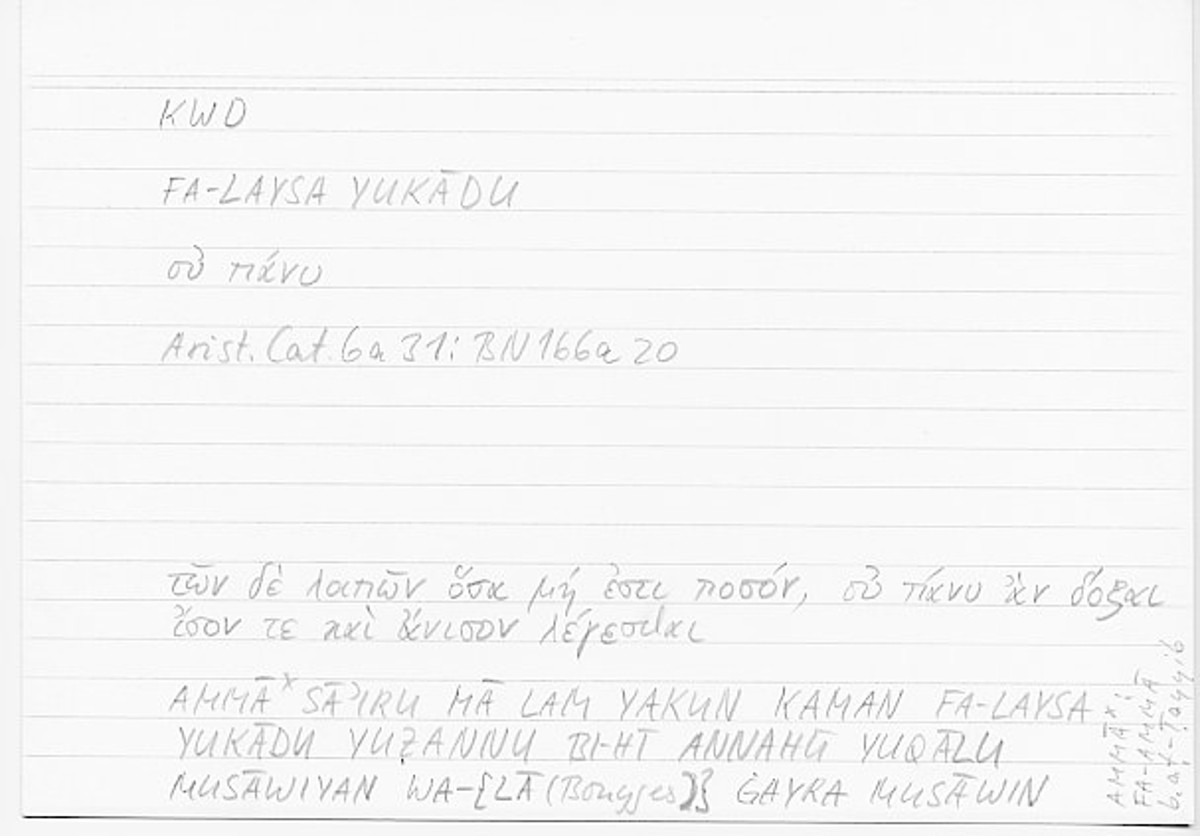 KWD
FA-LAYSA YUKĀDU
οὐ πάνυ
Arist. Cat. 6a 31: BN 166a 20
τῶν δὲ λοιπῶν ὅσα μή ἐστι ποσόν, οὐ πάνυ ἂν δόξαι
ἴσον τε καὶ ἄνισον λέγεσθαι
AMMĀˣ SĀʾIRU MĀ LAM YAKUN KAMAN FA-LAYSA
YUKĀDU YUẒANNU BI-HĪ ANNAHŪ YUQĀLU
MUSĀWIYAN WA-{LĀ (Bouyges)} ĠAYRA MUSĀWIN
AMMĀˣ:
FA-AMMĀ
b. aṭ-Ṭayyib